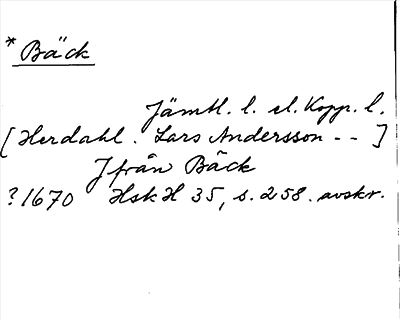 * Bäck
Jämtl. l. el. Kopp. l.
[Herdahl. Lars Andersson - - ]
J från Bäck
? 1670 HskH 35, s. 258. avskr.